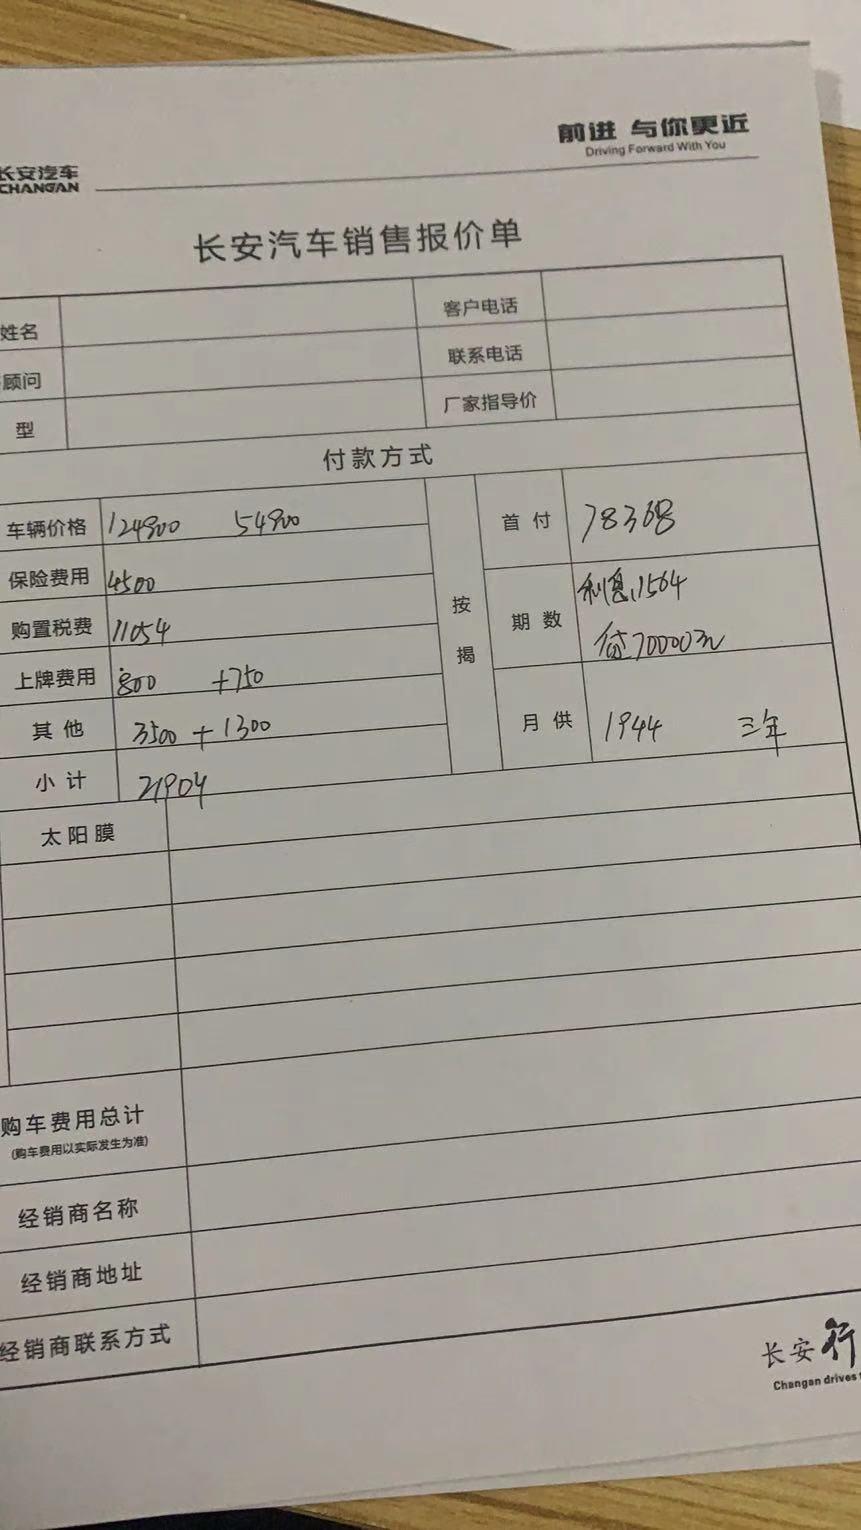 前进 与你更近
Driving Forward With You
长安汽车
CHANGAN
长安汽车销售报价单
姓名 客户电话
顾问 联系电话
型 厂家指导价
付款方式
车辆价格 124900 54900
保险费用 4500
购置税费 11054
上牌费用 800 +750
其他 3500 + 1300
小计 21904
按揭
首付 78368
期数 利息11564
贷70000元
月供 1944 三年
太阳膜
购车费用总计
(购车费用以实际发生为准)
经销商名称
经销商地址
经销商联系方式
长安行
Changan drives